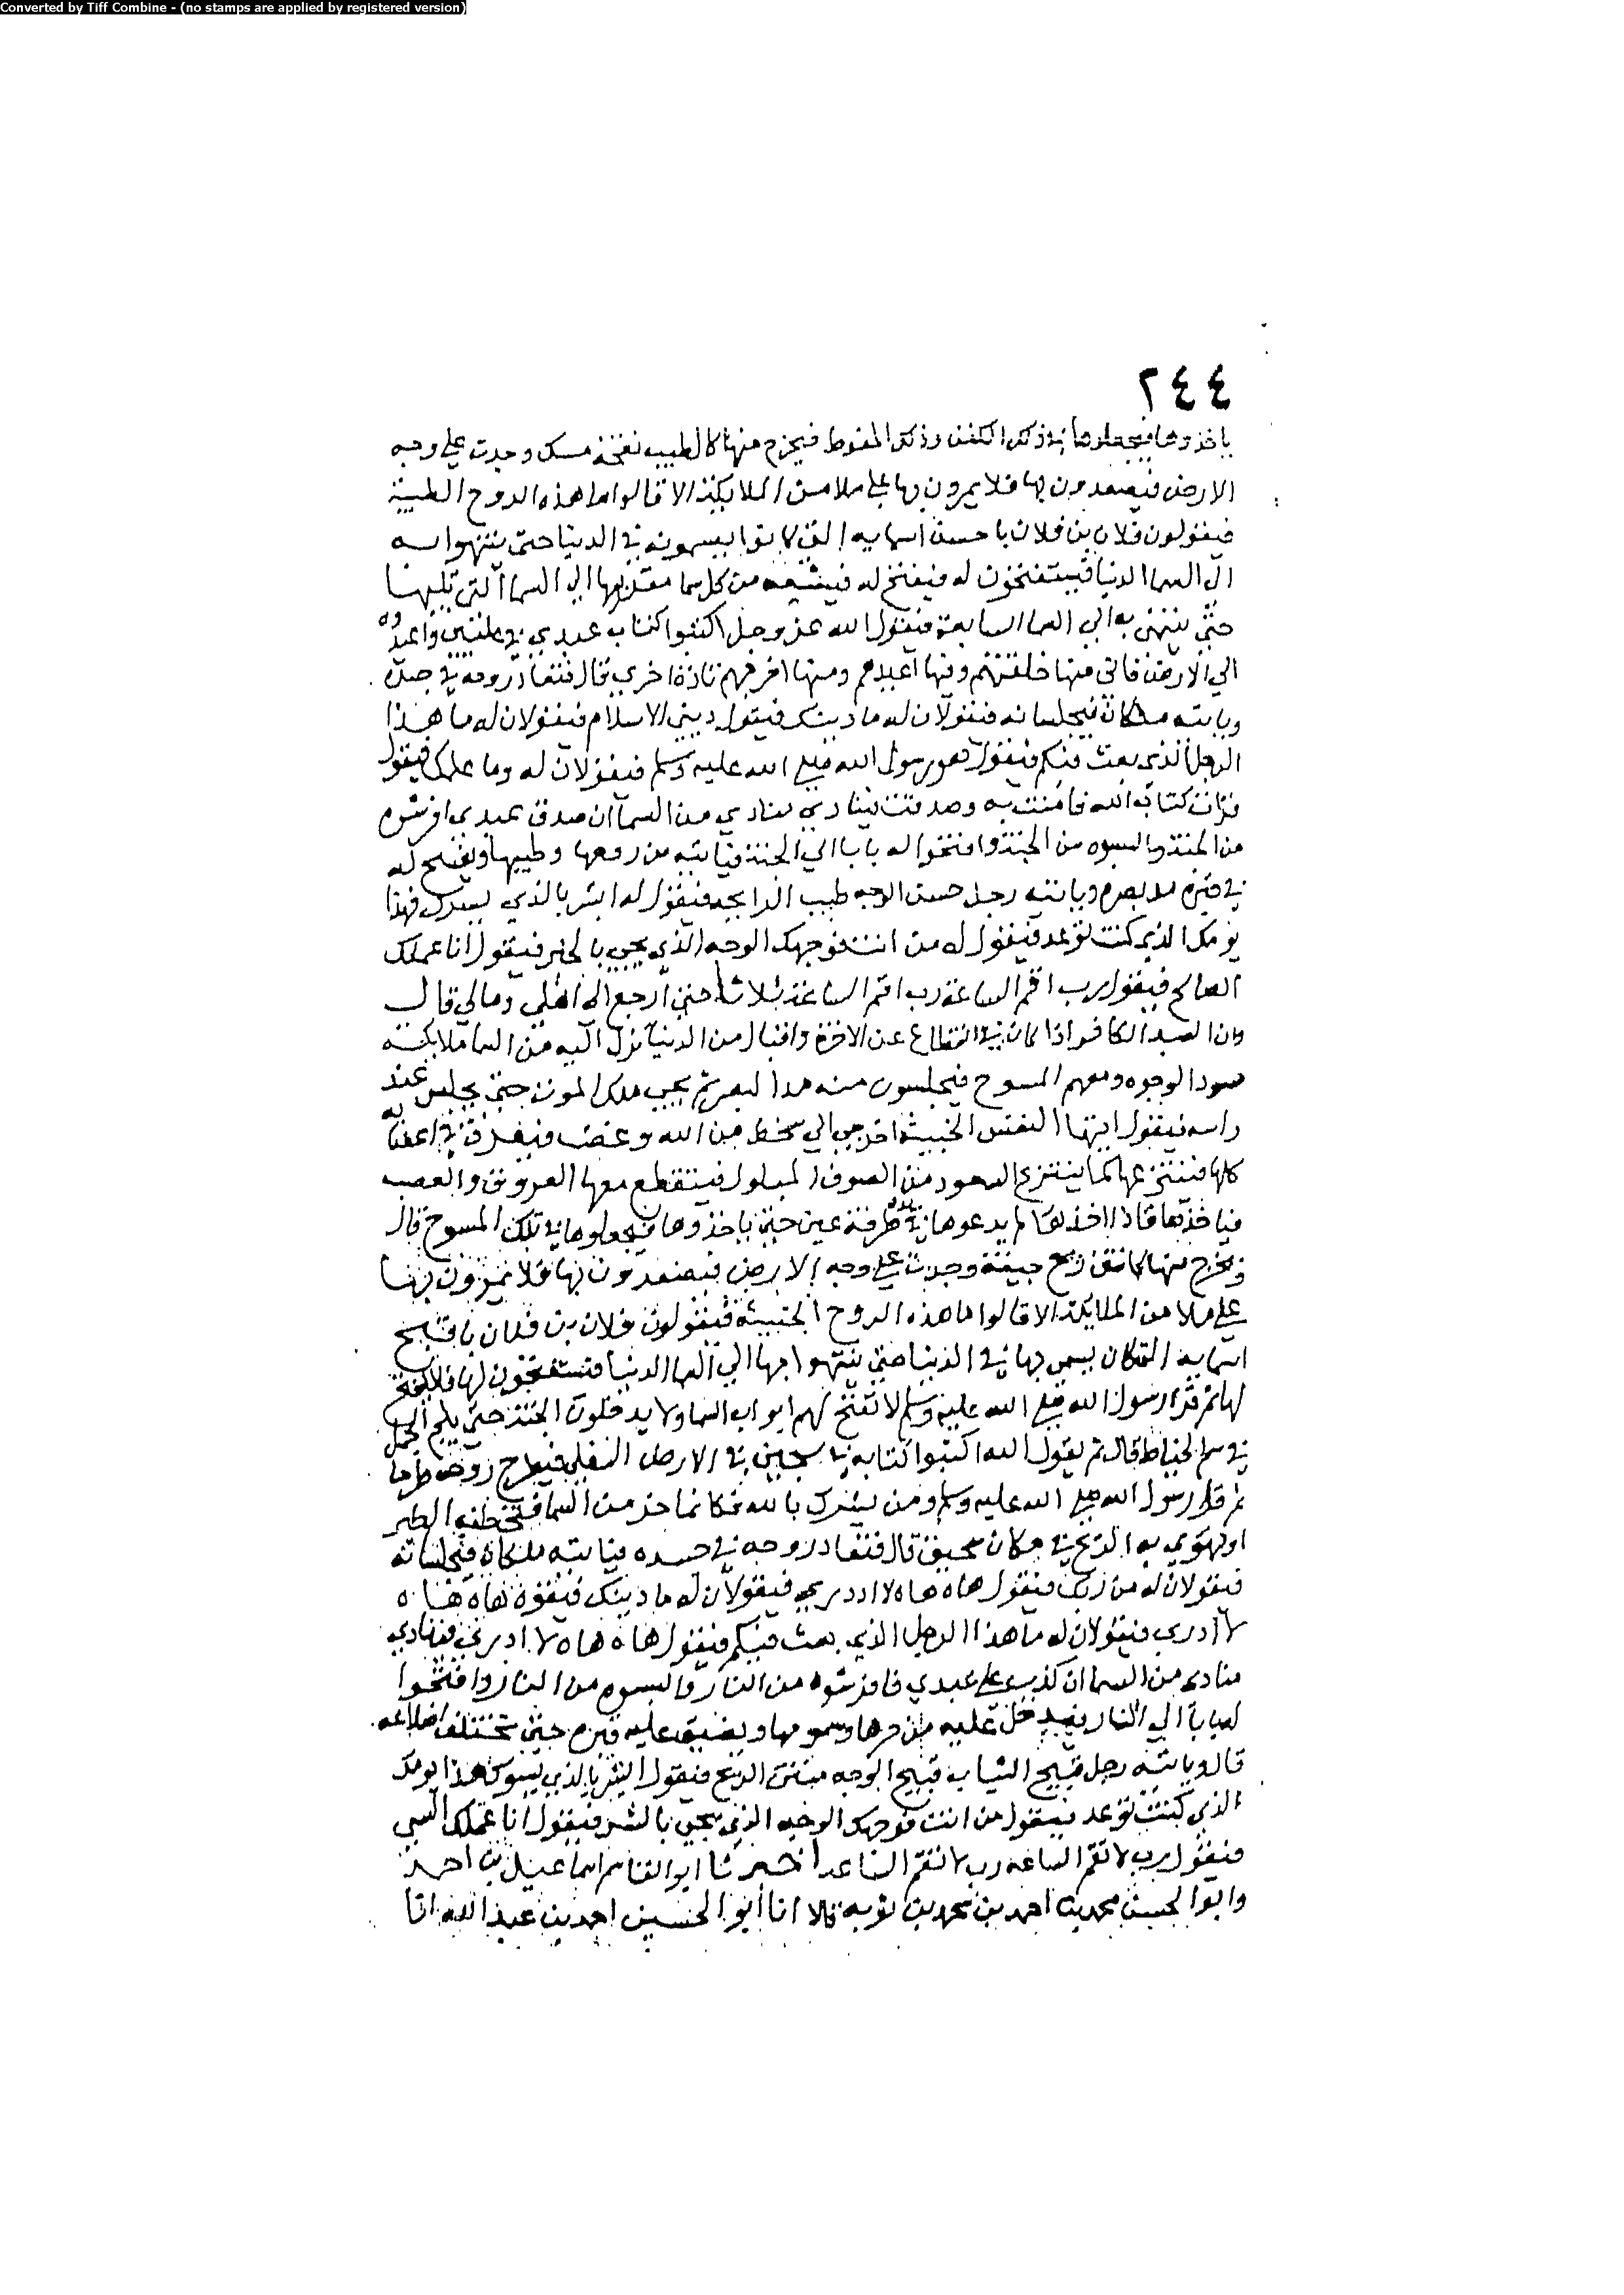 Converted by Tiff Combine - (no stamps are applied by registered version)
٢٤٤
ياخذوها فيجعلوها في ذلك الكفن وذلك الحنوط فيخرج منها كالطيب نفخة مسك وجدت علي وجه
الارض فيصعدون بها فلا يمرون بها علي ملا من الملايكة الا قالوا ما هذه الروح الطيبة
فيقولون فلان بن فلان باحسن اسمايه التي كانوا يسمونه في الدنيا حتي ينتهوا به
الي السما الدنيا فيستفتحون له فيفتح له فيشيعه من كل سما مقربوها الي السما التي تليها
حتي ينتهي به الي السما السابعة فيقول الله عز وجل اكتبوا كتاب عبدي في عليين واعيدوه
الي الارض فاني منها خلقتهم وفيها اعيدهم ومنها اخرجهم تارة اخري قال فتعاد روحه في جسده
وياتيه ملكان فيجلسانه فيقولان له ما دينك فيقول ديني الاسلام فيقولان له ما هذا
الرجل الذي بعث فيكم فيقول هو رسول الله صلي الله عليه وسلم فيقولان له وما علمك فيقول
قرات كتاب الله فامنت به وصدقت فينادي منادي من السما ان صدق عبدي افرشوه
من الجنة والبسوه من الجنة وافتحوا له بابا الي الجنة فياتيه من روحها وطيبها ويفسح له
في قبره مد بصره وياتيه رجل حسن الوجه طيب الرايحه فيقول له ابشر بالذي يسرك فهذا
يومك الذي كنت توعد فيقول له من انت فوجهك الوجه الذي يجي بالخير فيقول انا عملك
الصالح فيقول رب اقم الساعة رب اقم الساعة ثلاثا حتي ارجع الي اهلي ومالي قال
وان العبد الكافر اذا كان في انقطاع عن الاخرة واقبال من الدنيا نزل اليه من السما ملايكة
سود الوجوه ومعهم المسوح فيجلسون منه مد البصر ثم يجي ملك الموت حتي يجلس عند
راسه فيقول ايتها النفس الخبيثة اخرجي الي سخط من الله وغضب فيفرق في اعضايه
كلها فينتزعها كما ينتزع السفود من الصوف المبلول فيتقطع معها العروق والعصب
فياخذها فاذا اخذها لم يدعوها في يده طرفة عين حتي ياخذوها فيجعلوها في تلك المسوح قال
ويخرج منها كانتن ريح جيفة وجدت علي وجه الارض فيصعدون بها فلا يمرون بها
علي ملا من الملايكة الا قالوا ما هذه الروح الخبيثة فيقولون فلان بن فلان باقبح
اسمايه التي كان يسمي بها في الدنيا حتي ينتهوا بها الي السما الدنيا فيستفتحون لها فلا يفتح
لها ثم قرا رسول الله صلي الله عليه وسلم لا تفتح لهم ابواب السما ولا يدخلون الجنة حتي يلج الجمل
في سم الخياط قال ثم يقول الله اكتبوا كتابه في سجين في الارض السفلي فيطرح روحه طرحا
ثم قرا رسول الله صلي الله عليه وسلم ومن يشرك بالله فكانما خر من السما فتخطفه الطير
او تهوي به الريح في مكان سحيق قال فتعاد روحه في جسده فياتيه ملكان فيجلسانه
فيقولان له من ربك فيقول هاه هاه لا ادري فيقولان له ما دينك فيقول هاه هاه
لا ادري فيقولان له ما هذا الرجل الذي بعث فيكم فيقول هاه هاه لا ادري فينادي
منادي من السما ان كذب علي عبدي فافرشوه من النار والبسوه من النار وافتحوا
له بابا الي النار فيدخل عليه من حرها وسمومها ويضيق عليه قبره حتي تختلف اضلاعه
قال وياتيه رجل قبيح الثياب قبيح الوجه منتن الريح فيقول ابشر بالذي يسوك هذا يومك
الذي كنت توعد فيقول من انت فوجهك الوجه الذي يجي بالشر فيقول انا عملك السي
فيقول رب لا تقم الساعة رب لا تقم الساعة اخبرنا ابو القاسم اسماعيل بن احمد
وابو الحسن محمد بن احمد بن محمد بن توبه قالا انا ابو الحسين احمد بن عبد الله انا